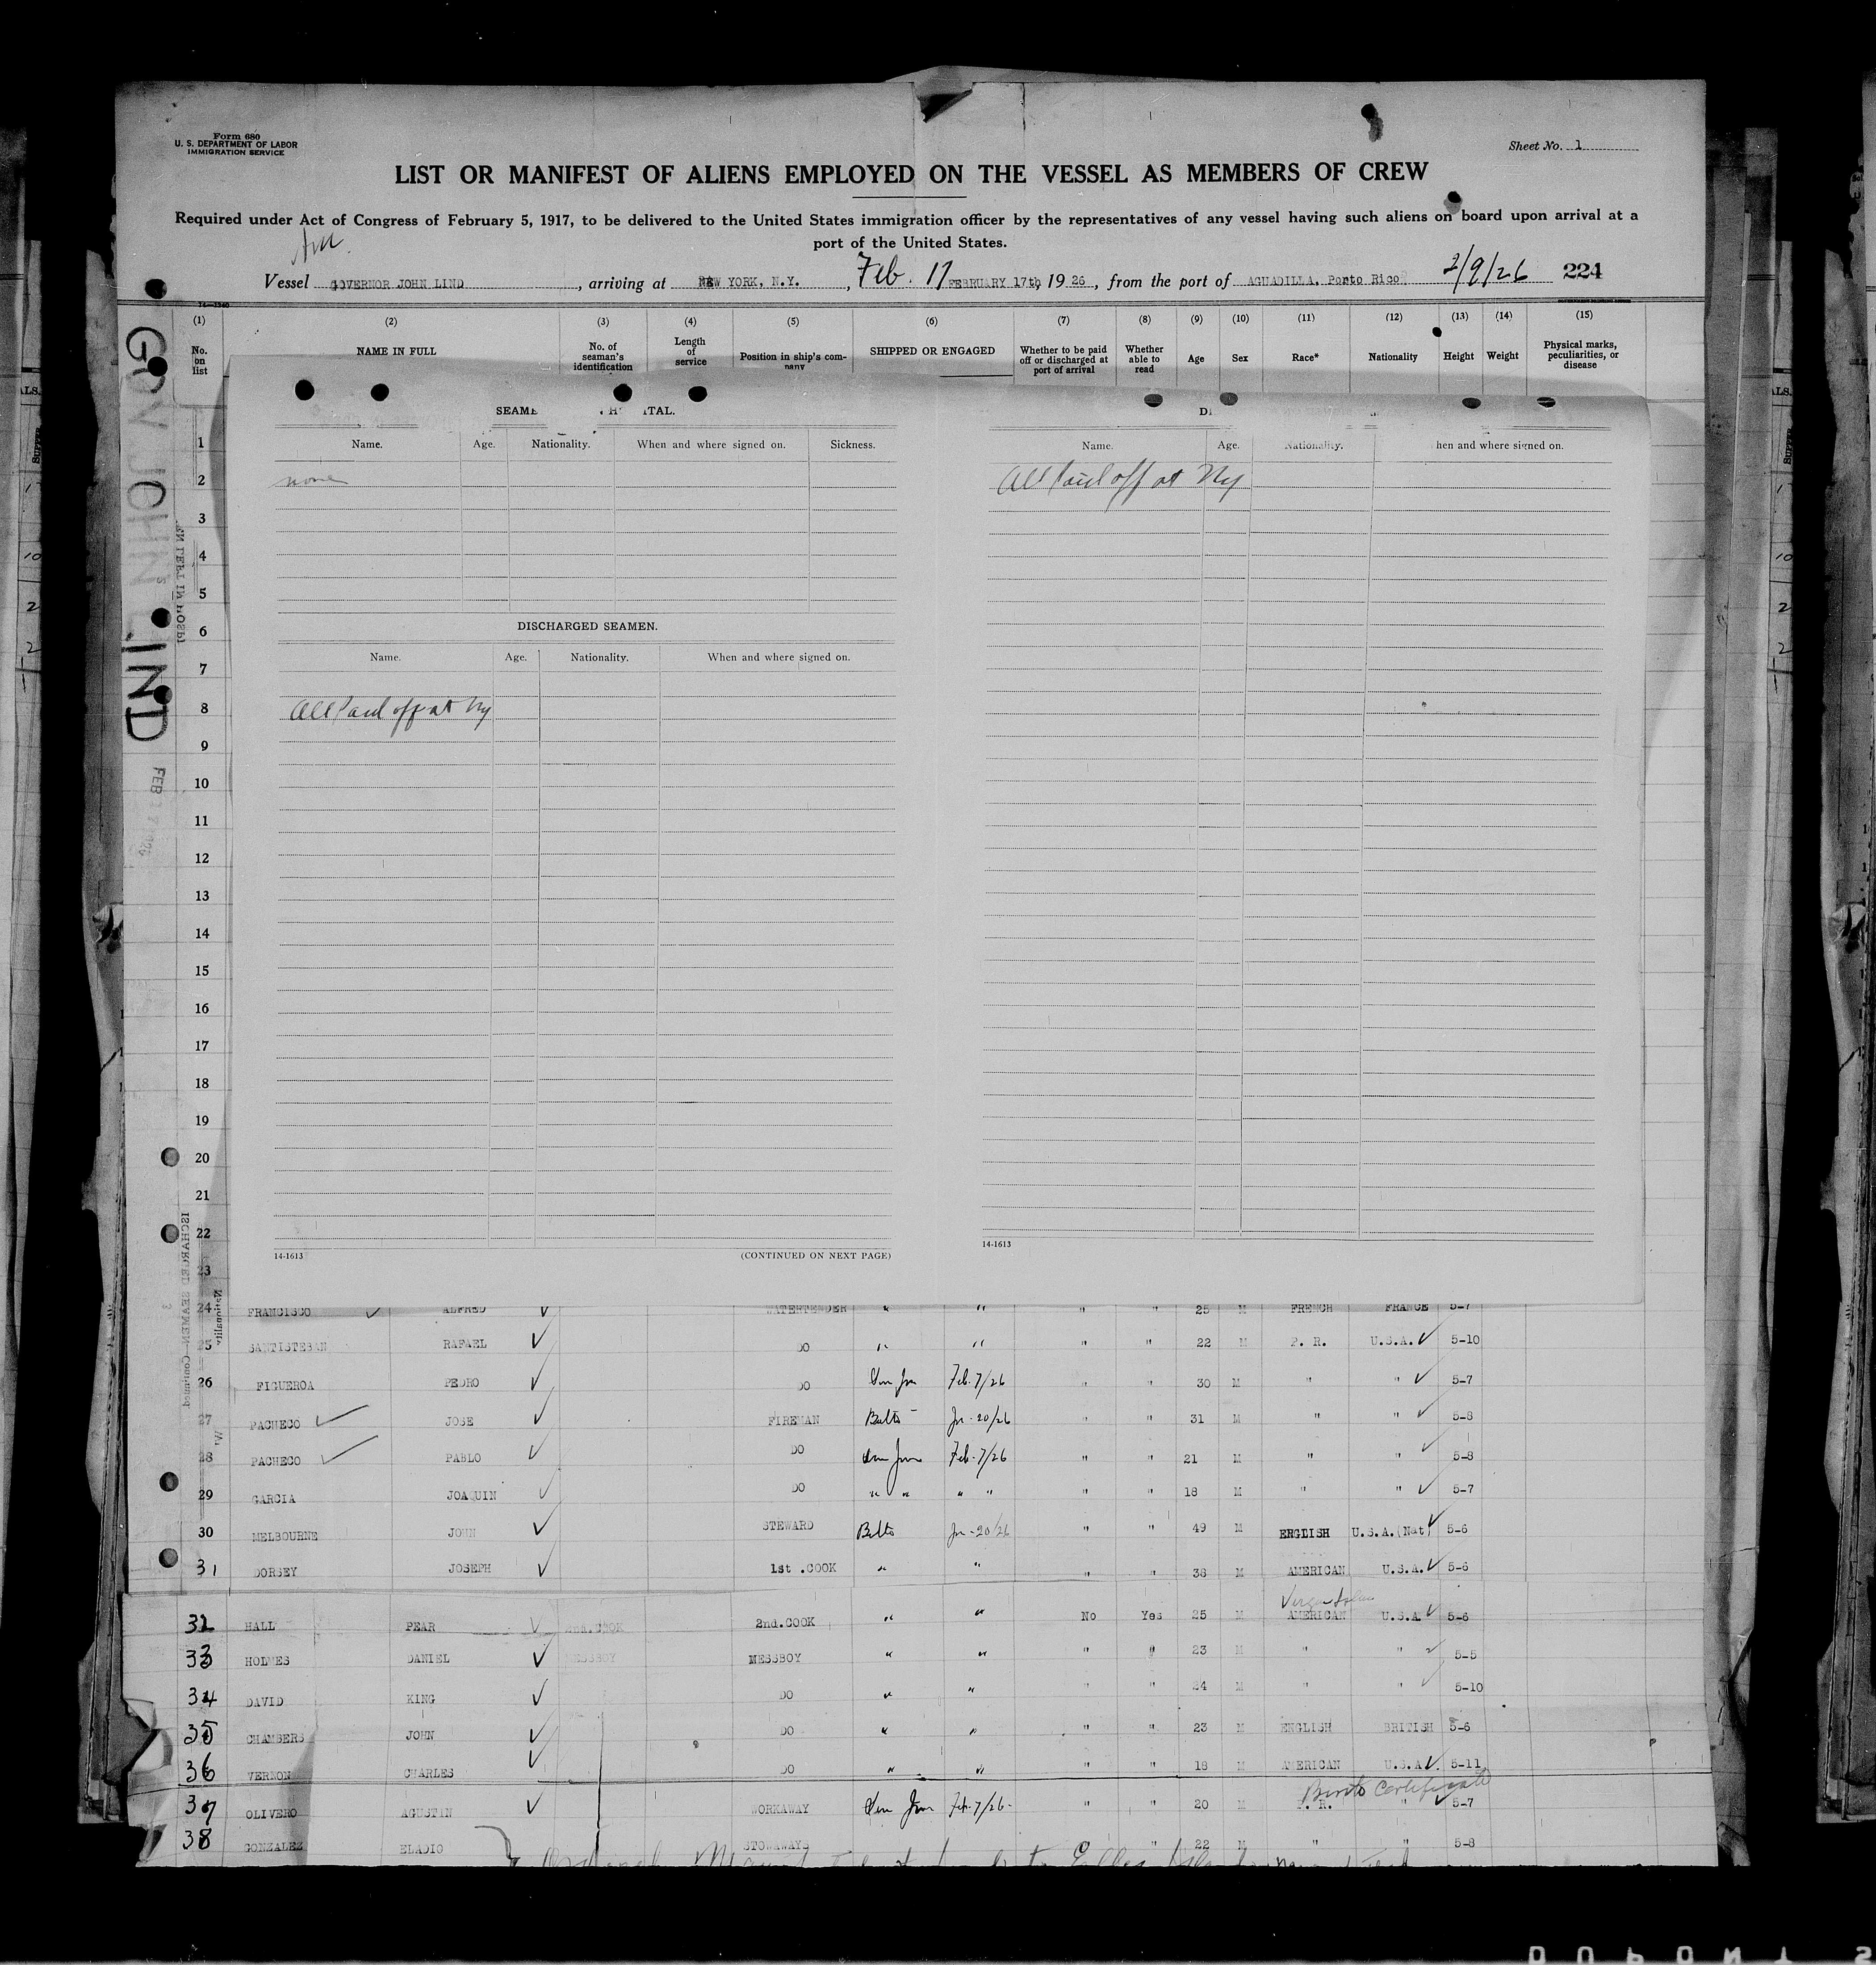 Form 680
U. S. DEPARTMENT OF LABOR
IMMIGRATION SERVICE
Sheet No. 1
LIST OR MANIFEST OF ALIENS EMPLOYED ON THE VESSEL AS MEMBERS OF CREW
Required under Act of Congress of February 5, 1917, to be delivered to the United States immigration officer by the representatives of any vessel having such aliens on board upon arrival at a
port of the United States.
Am
Vessel GOVERNOR JOHN LIND, arriving at NEW YORK, N.Y., Feb. 17 FEBRUARY 17th, 1926, from the port of AGUADILLA, Porto Rico 2/9/26 224
(1) (2) (3) (4) (5) (6) (7) (8) (9) (10) (11) (12) (13) (14) (15)
No. on list NAME IN FULL No. of seaman's identification Length of service Position in ship's company SHIPPED OR ENGAGED Whether to be paid off or discharged at port of arrival Whether able to read Age Sex Race* Nationality Height Weight Physical marks, peculiarities, or disease
GOV JOHN LIND
FEB
SEAME ITAL.
Name. Age. Nationality. When and where signed on. Sickness.
none
DISCHARGED SEAMEN.
Name. Age. Nationality. When and where signed on.
All Paid off at Ny
14-1613 (CONTINUED ON NEXT PAGE)
Name. Age. Nationality. hen and where signed on.
All Paid off at Ny
14-1613
1
2
3
4
5
6
7
8
9
10
11
12
13
14
15
16
17
18
19
20
21
22
23
24 FRANCISCO ✓ ALFRED ✓ WATERTENDER " " " " 25 M FRENCH FRANCE 5-7
25 SANTISTEBAN RAFAEL ✓ DO " " " " 22 M P. R. U.S.A. ✓ 5-10
26 FIGUEROA PEDRO ✓ DO San Jun Feb. 7/26 " " 30 M " " ✓ 5-7
27 PACHECO ✓ JOSE ✓ FIREMAN Balto Jn-20/26 " " 31 M " " ✓ 5-8
28 PACHECO ✓ PABLO ✓ DO San Jun Feb. 7/26 " " 21 M " " ✓ 5-8
29 GARCIA JOAQUIN ✓ DO " " " " " " 18 M " " ✓ 5-7
30 MELBOURNE JOHN ✓ STEWARD Balto Jn-20/26 " " 49 M ENGLISH U.S.A.(Nat) ✓ 5-6
31 DORSEY JOSEPH ✓ 1st .COOK " " " " 38 M AMERICAN U.S.A. ✓ 5-6
32 HALL PEAR ✓ 2nd.COOK 2nd.COOK " " No Yes 25 M AMERICAN U.S.A ✓ 5-6
33 HOLMES DANIEL ✓ MESSBOY MESSBOY " " " " 23 M " " ✓ 5-5
34 DAVID KING ✓ DO " " " " 24 M " " ✓ 5-10
35 CHAMBERS JOHN ✓ DO " " " " 23 M ENGLISH BRITISH 5-6
36 VERNON CHARLES ✓ DO " " " " 18 M AMERICAN U.S.A. ✓ 5-11
Birth Certificate
37 OLIVERO AGUSTIN ✓ WORKAWAY San Jun Feb. 7/26- " " 20 M P. R. " ✓ 5-7
38 GONZALEZ ELADIO STOWAWAYS " 22 M " " 5-8